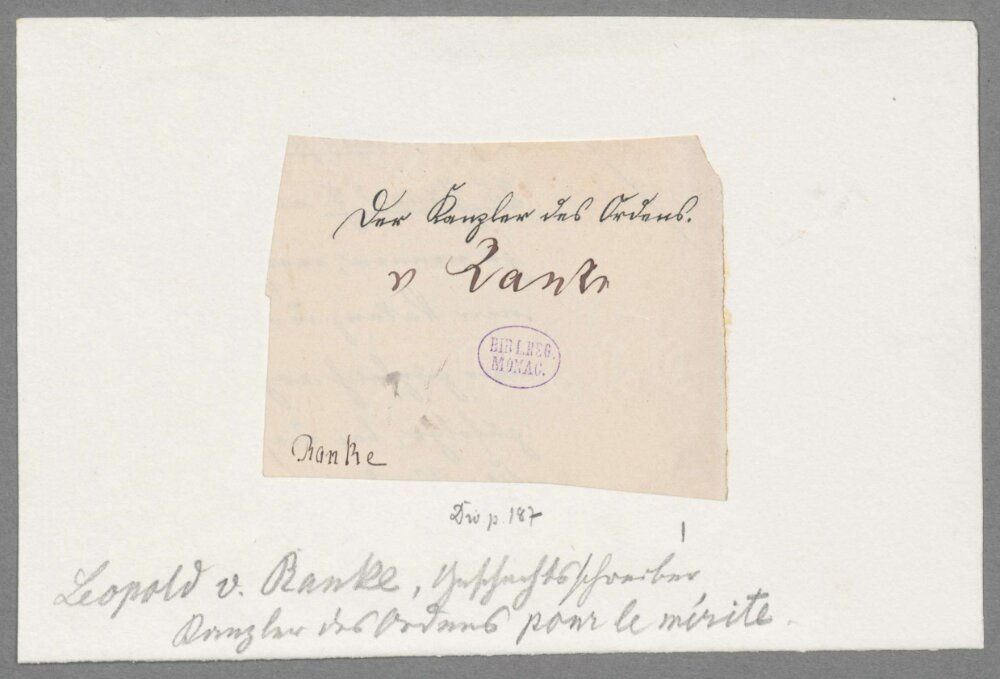 Der Kanzler des Ordens.
v Ranke
BIBL.REG.
MONAC.
Ranke
p. 187
Leopold v. Ranke, Geschichtsschreiber
Kanzler des Ordens pour le mérite.